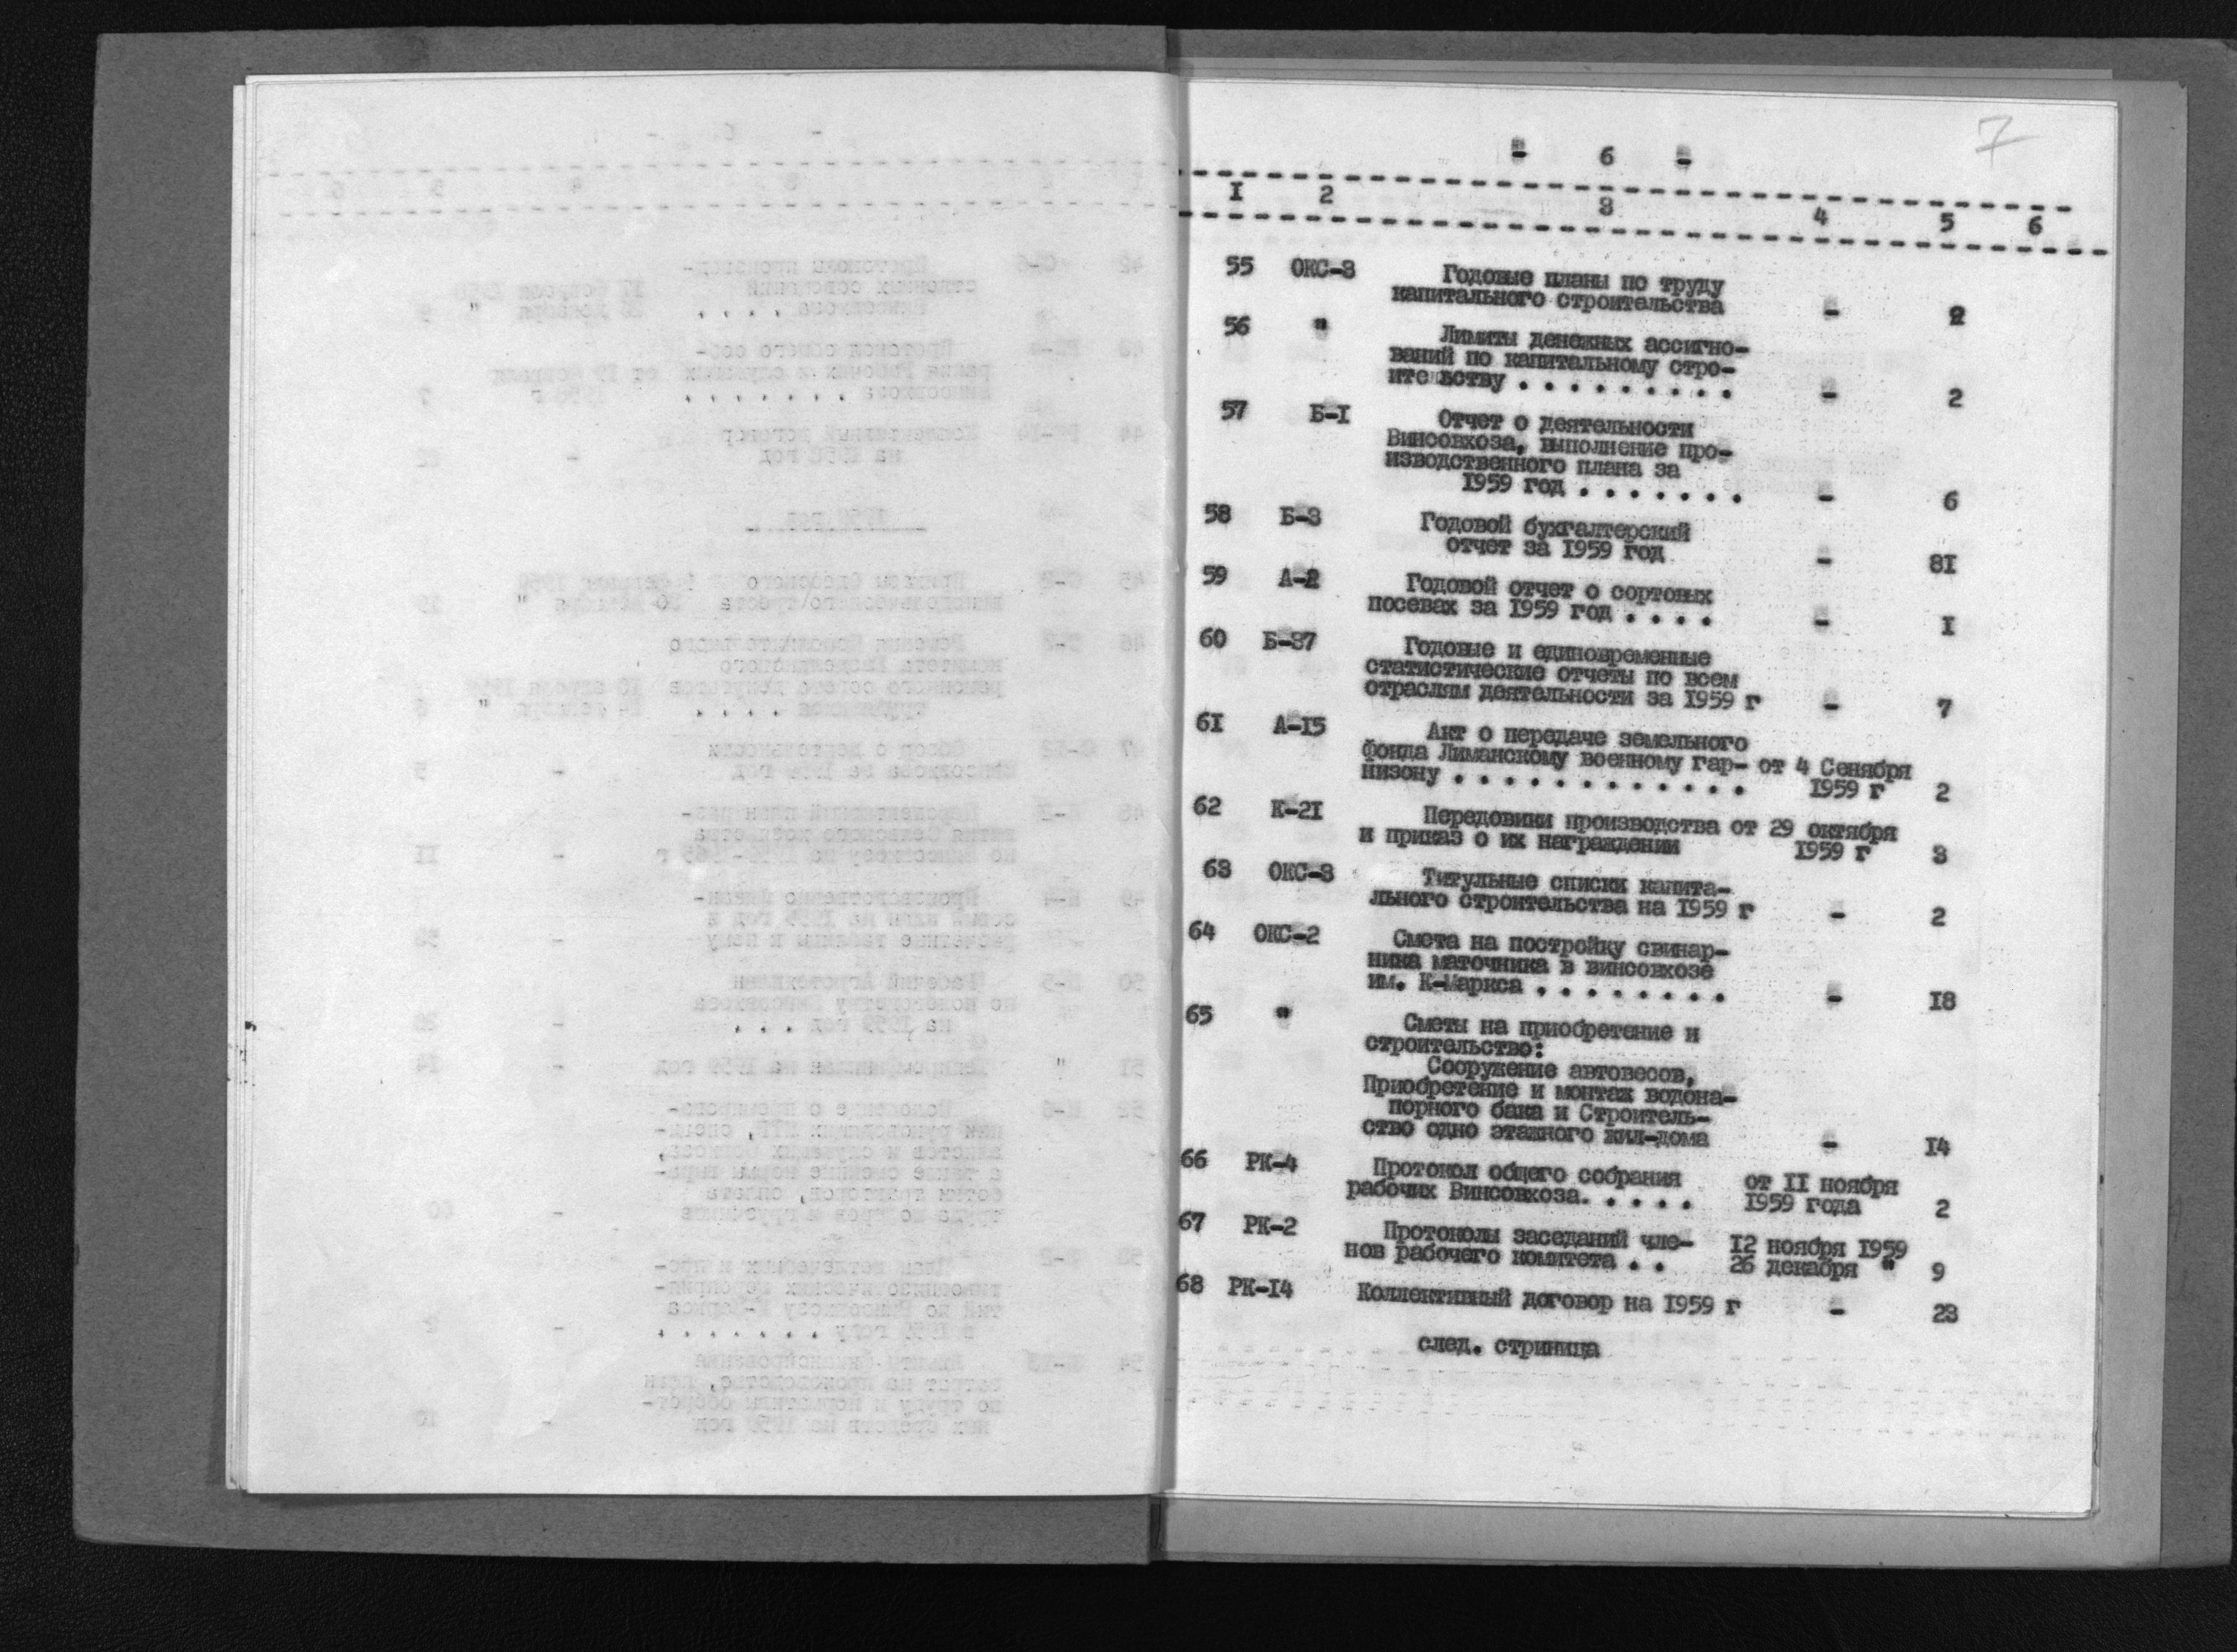 7
- 6 -
I 2 3 4 5 6
55 ОКС-3 Годовые планы по труду
капитального строительства - 2
56 " Лимиты денежных ассигно-
ваний по капитальному стро-
ительству . . . . . . . . . - 2
57 Б-I Отчет о деятельности
Винсовхоза, выполнение про-
изводственного плана за
I959 год . . . . . . . - 6
58 Б-3 Годовой бухгалтерский
отчет за I959 год - 8I
59 А-2 Годовой отчет о сортовых
посевах за I959 год . . . . - I
60 Б-37 Годовые и единовременные
статистические отчеты по всем
отраслям деятельности за I959 г - 7
6I А-I5 Акт о передаче земельного
фонда Лиманскому военному гар- от 4 Сенября
низону . . . . . . . . . . . . I959 г 2
62 К-2I Передовики производства от 29 октября
и приказ о их награждении I959 г 3
63 ОКС-3 Титульные списки капита-
льного строительства на I959 г - 2
64 ОКС-2 Смета на постройку свинар-
ника маточника в винсовхозе
им. К-Маркса . . . . . . . . - I8
65 " Сметы на приобретение и
строительство:
Сооружение автовесов,
Приобретение и монтаж водона-
порного бака и Строитель-
ство одно этажного жил-дома - I4
66 РК-4 Протокол общего собрания от II ноября
рабочих Винсовхоза. . . . . I959 года 2
67 РК-2 Протоколы заседаний чле- I2 ноября I959
нов рабочего комитета . . 26 декабря " 9
68 РК-I4 Коллективный договор на I959 г - 23
след. стриница